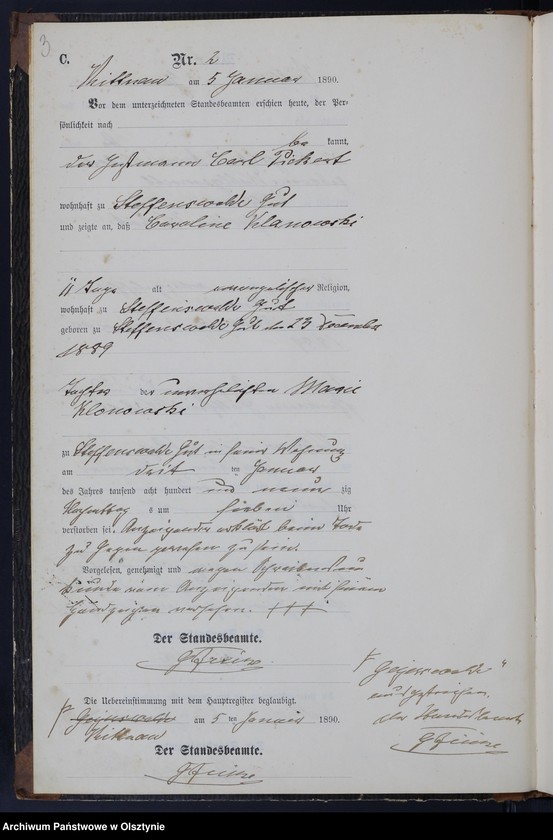 3
C.
Nr. 2
Wittmau am 5 Januar 1890.
Vor dem unterzeichneten Standesbeamten erschien heute, der Per-
sönlichkeit nach
be kannt,
der Carl Pickert
wohnhaft zu Steffenswalde Gut
und zeigte an, daß Caroline Klanowski
11 Tage alt evangelischer Religion,
wohnhaft zu Steffenswalde Gut
geboren zu Steffenswalde Gut den 23 Dezember
1889
Tochter der unverehelichten Marie
Klonowski
zu Steffenswalde Gut in seiner Wohnung
am drit ten Januar
des Jahres tausend acht hundert und neun zig
Nachmittag s um sieben Uhr
verstorben sei. Anzeigender erklärt beim Tode
zu gegen gewesen zu sein.
Vorgelesen, genehmigt und wegen Schreibens un
kunde vom Anzeigenden mit seinem
Handzeichen versehen. +++
Der Standesbeamte.
Die Uebereinstimmung mit dem Hauptregister beglaubigt.
am 5 ten Januar 1890.
Der Standesbeamte.
Der Standesbeamte
Archiwum Państwowe w Olsztynie